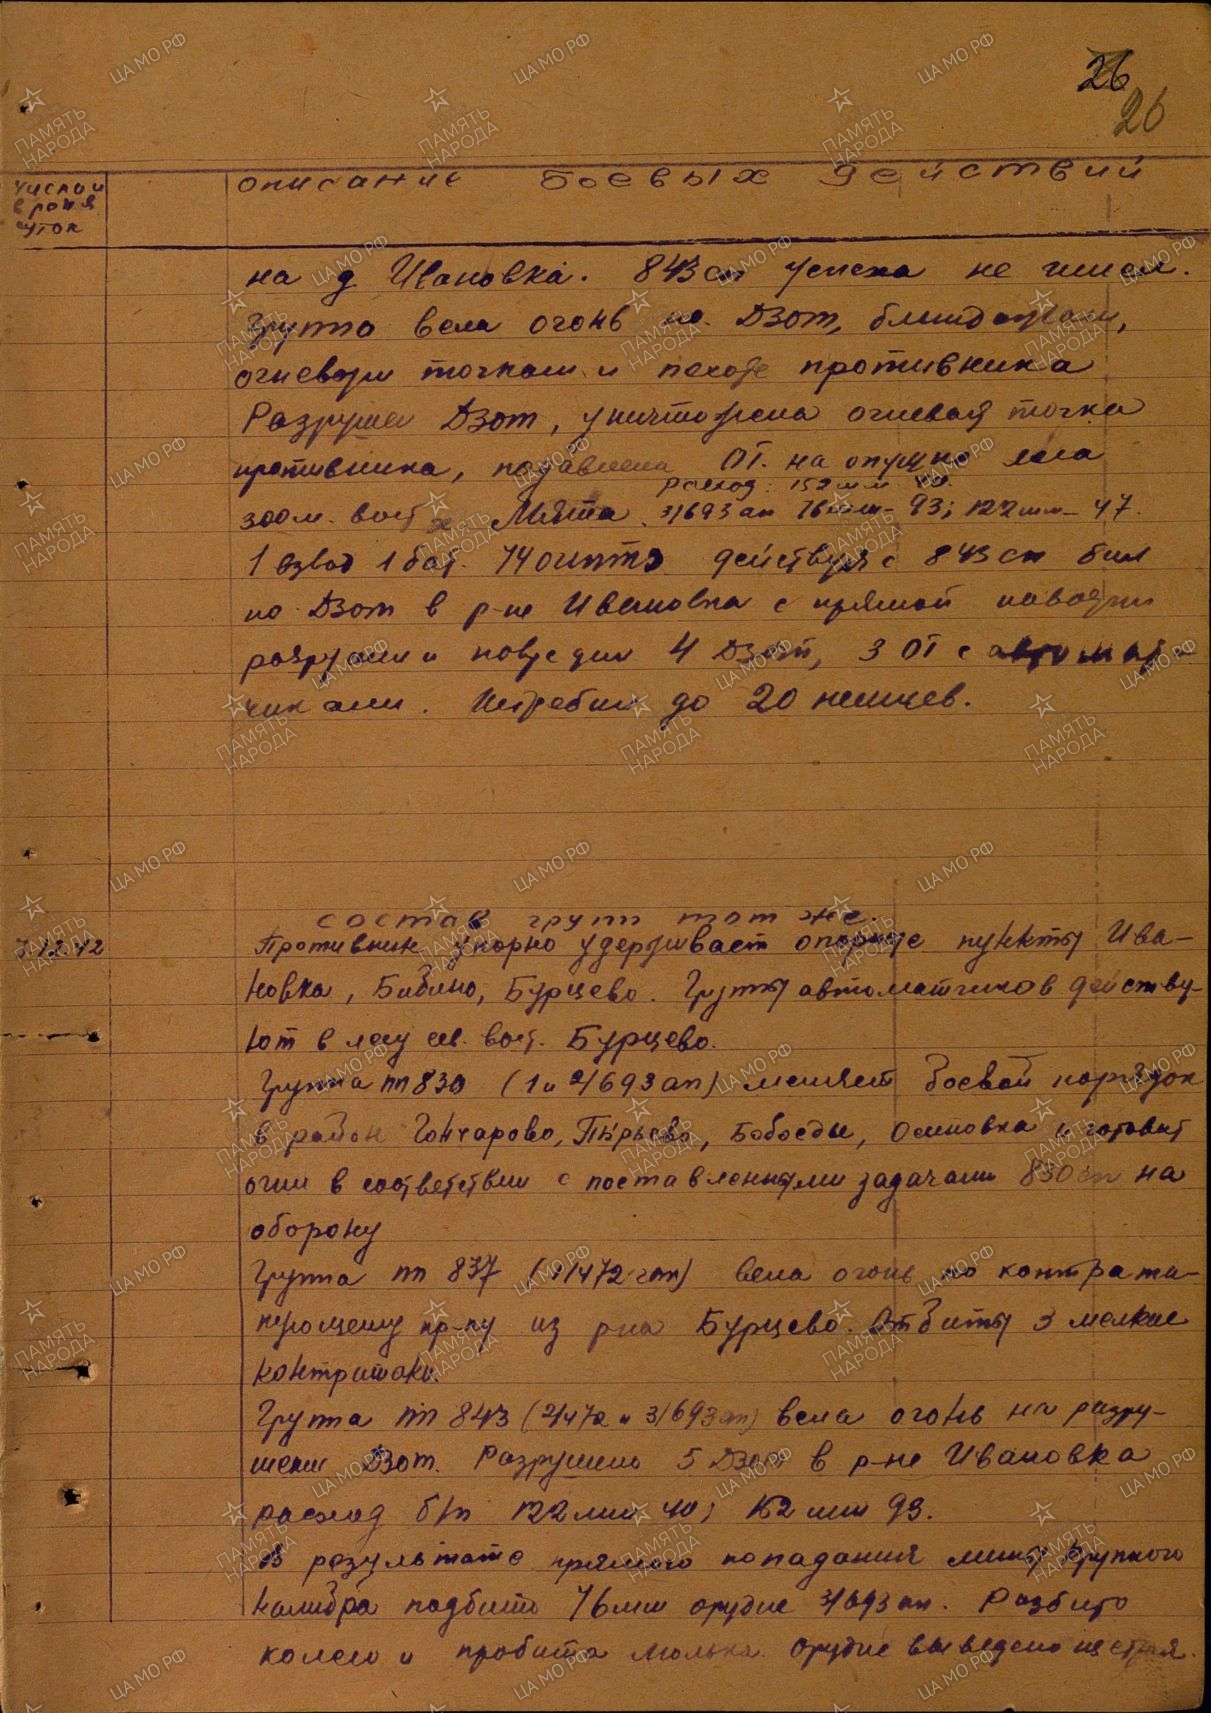 26
26
число и
время
суток
описание боевых действий
на д. Ивановка. 843 сп успеха не имел.
Группа вела огонь по ДЗОТ, блиндажам,
огневым точкам и пехоте противника
Разрушен ДЗОТ, уничтожена огневая точка
противника, подавлена ОТ. на опушке леса
Расход: 152 мм
300 м. вост. Мята. 3/693 ап 76 мм - 93; 122 мм - 47.
1 взвод 1 бат. 14 оиптд действуя с 843 сп бил
по ДЗОТ в р-не Ивановка с прямой наводки
разрушил и повредил 4 ДЗОТ, 3 ОТ с автомат
чиками. Истребил до 20 немцев.
состав групп тот же.
7.12.42
Противник упорно удерживает опорные пункты Ива-
новка, Бибино, Бурцево. Группы автоматчиков действу-
ют в лесу сев. вост. Бурцево.
Группа пп 830 (1 и 2/693 ап) меняет боевой порядок
в район Гончарово, Пырьево, Бобоеды, Осиновка и готовит
огни в соответствии с поставленными задачами 830 сп на
оборону
Группа пп 837 (1/472 гап) вела огонь по контрата-
кующему пр-ку из р-на Бурцево. Отбиты 3 мелкие
контратаки.
Группа пп 843 (2/472 и 3/693 ап) вела огонь на разру-
шение ДЗОТ. Разрушено 5 ДЗОТ в р-не Ивановка
расход б/п 122 мм 40; 152 мм 93.
В результате прямого попадания мины крупного
калибра подбито 76 мм орудие 3/693 ап. Разбито
колесо и пробита люлька. Орудие выведено из строя.